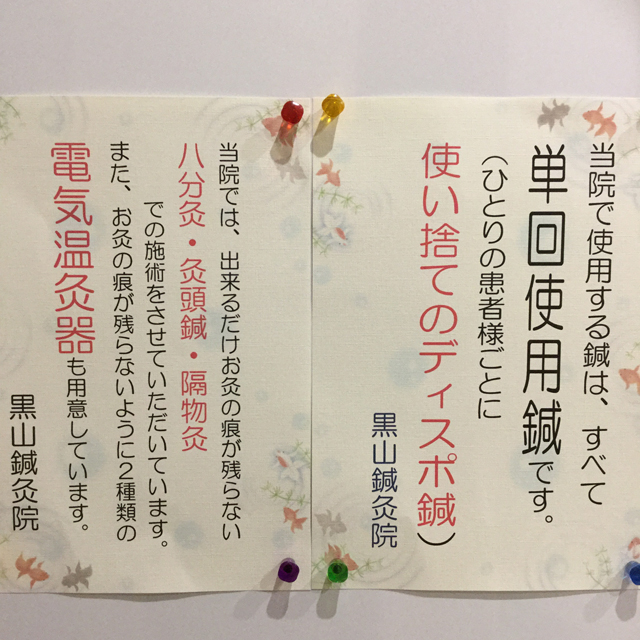 当院で使用する鍼は、すべて
単回使用鍼です。
（ひとりの患者様ごとに
使い捨てのディスポ鍼）
黒山鍼灸院
当院では、出来るだけお灸の痕が残らない
八分灸・灸頭鍼・隔物灸
での施術をさせていただいています。
また、お灸の痕が残らないように２種類の
電気温灸器も用意しています。
黒山鍼灸院